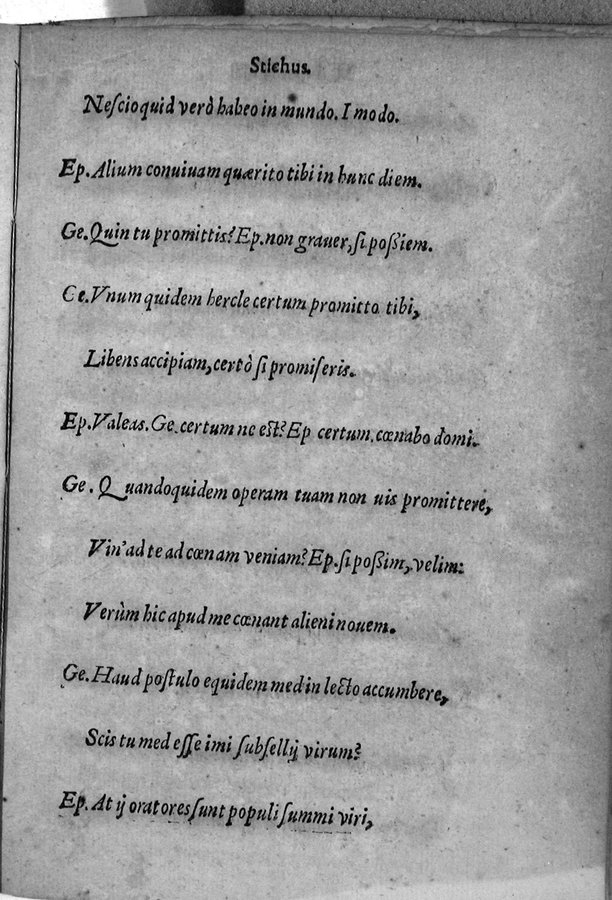 Stichus.
Neſcioquid verò habeo in mundo. I modo.
Ep. Alium conuiuam quærito tibi in hunc diem.
Ge. Quin tu promittis? Ep. non grauer, ſi poßiem.
Ce. Vnum quidem hercle certum promitto tibi,
Libens accipiam, certò ſi promiſeris.
Ep. Valeas. Ge. certum ne eſt? Ep certum. cœnabo domi.
Ge. Quandoquidem operam tuam non uis promittere,
Vin' ad te ad cœnam veniam? Ep. ſi poßim, velim:
Verùm hic apud me cœnant alieni nouem.
Ge. Haud poſtulo equidem med in lecto accumbere,
Scis tu med eſſe imi ſubſellij virum?
Ep. At ij oratores ſunt populi ſummi viri,